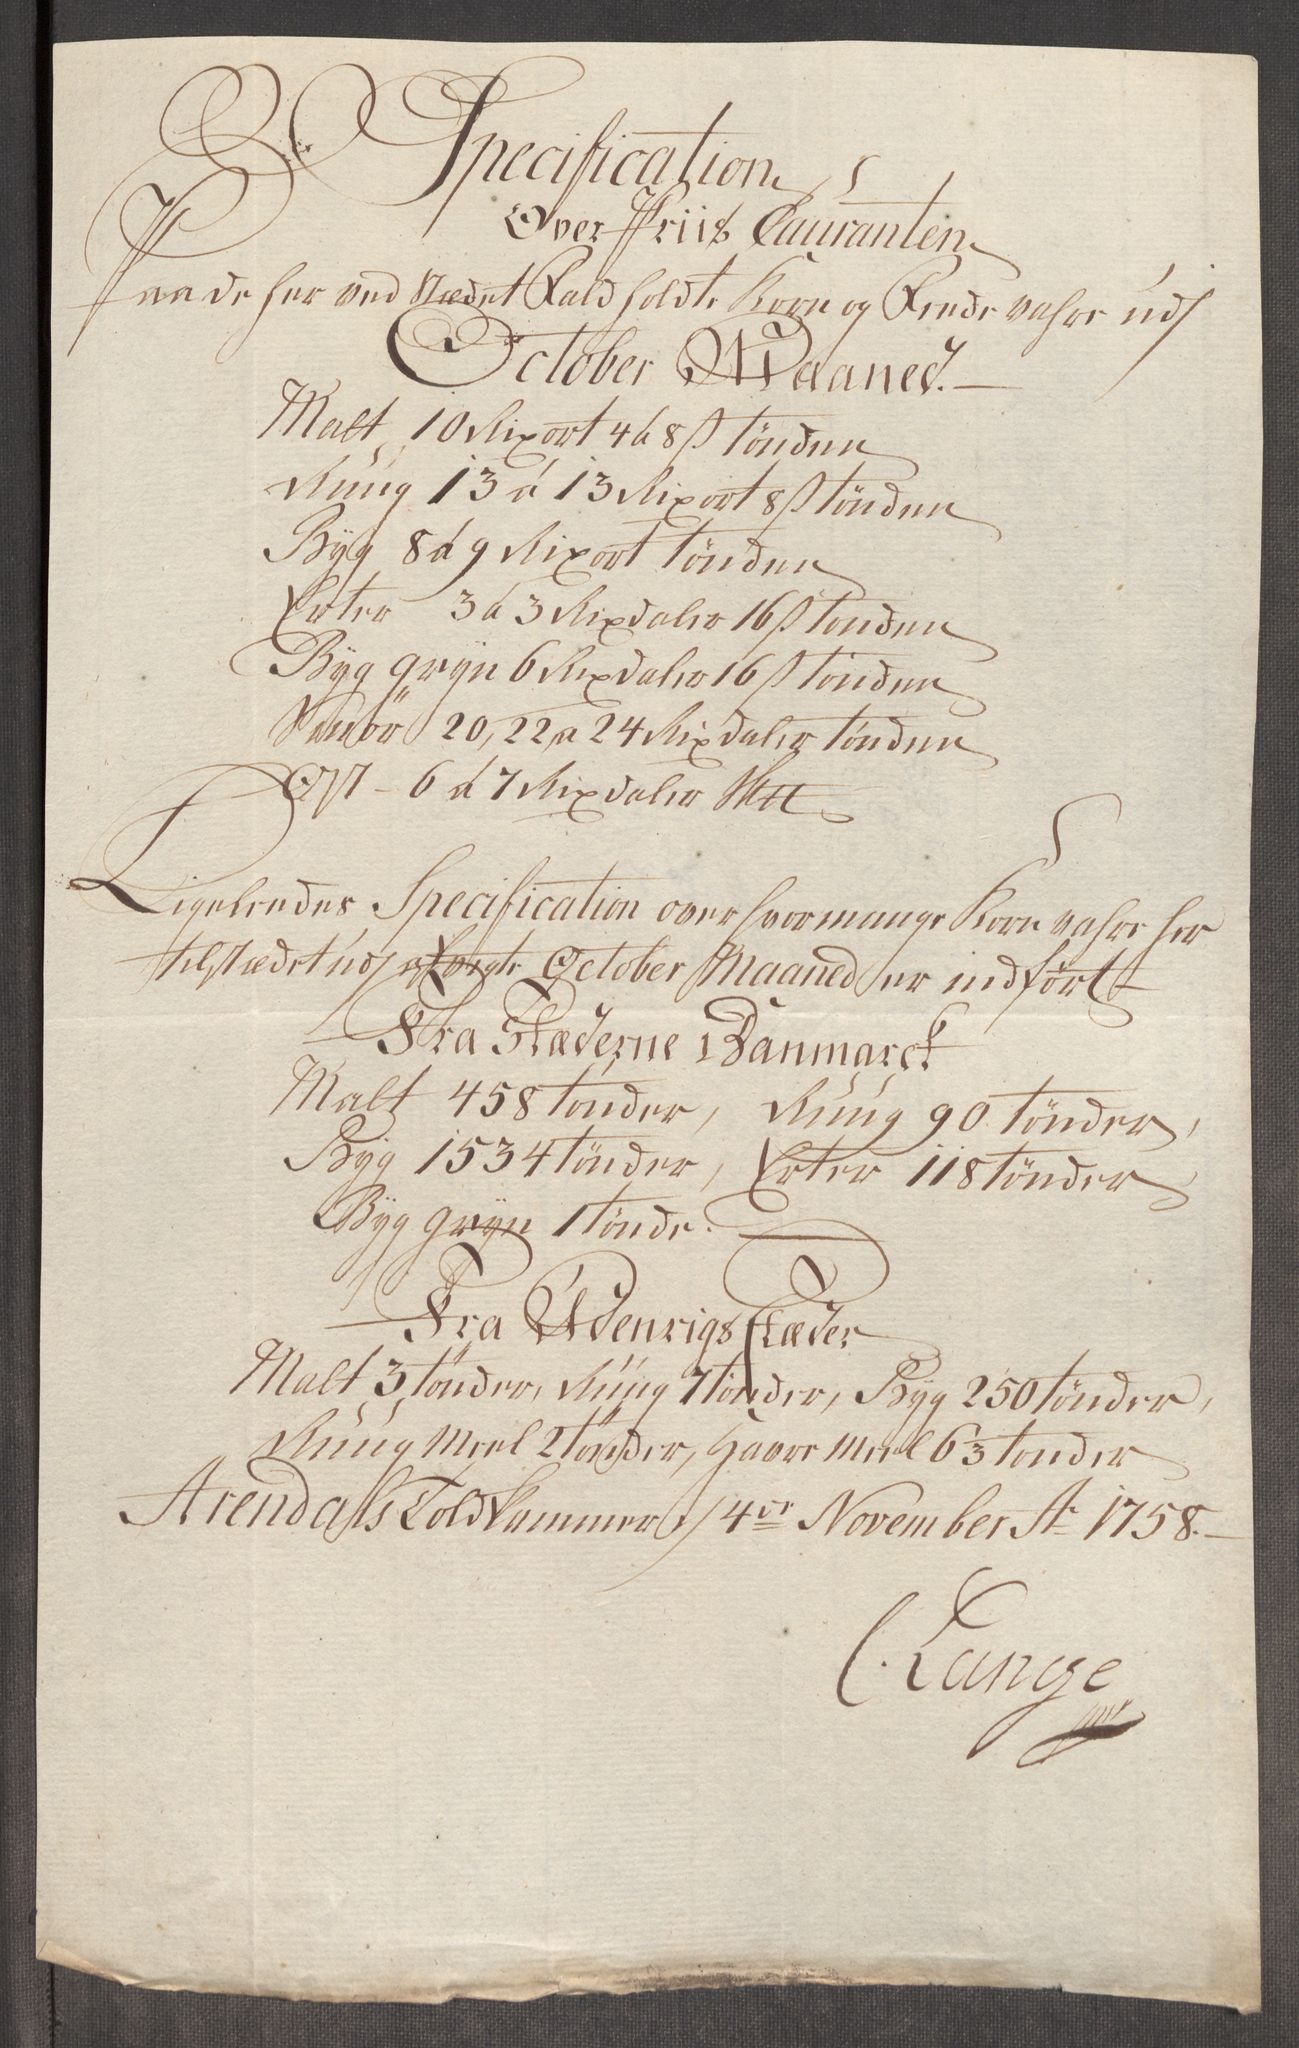 Specification
Over Priis Couranten
Paa de her ved Stædet Faldholdte Korn og Fede vahre udj
October Maaned.
Malt 10 Rixort 4 à 8 ß tönden
Rúúg 13 à 13 Rixort 8 ß tönden
Byg 8 à 9 Rixort tönden
Erter 3 à 3 Rixdaler 16 ß tönden
Byg gryn 6 Rixdaler 16 ß tönden
Smör 20, 22 a 24 Rixdaler tönden
Ost 6 à 7 Rixdaler Sk℔
Ligeledes Specification over hvor mange Korn vahre her
til Stædet udj October Maaned er indfört
Fra Stæderne i Danmarck
Malt 458 tönder, Rúúg 90 tönder,
Byg 1534 tönder, Erter 118 tönder
Byg gryn 1 tönde.
Fra Udenrigs Stæder
Malt 3 tönder, Rúúg 7 tönder, Byg 250 tönder,
Rúúg Meel 2 tönder, Havre Meel 63 tönder
Arendals Toldkammer 4er November Ao 1758.
C. Lange